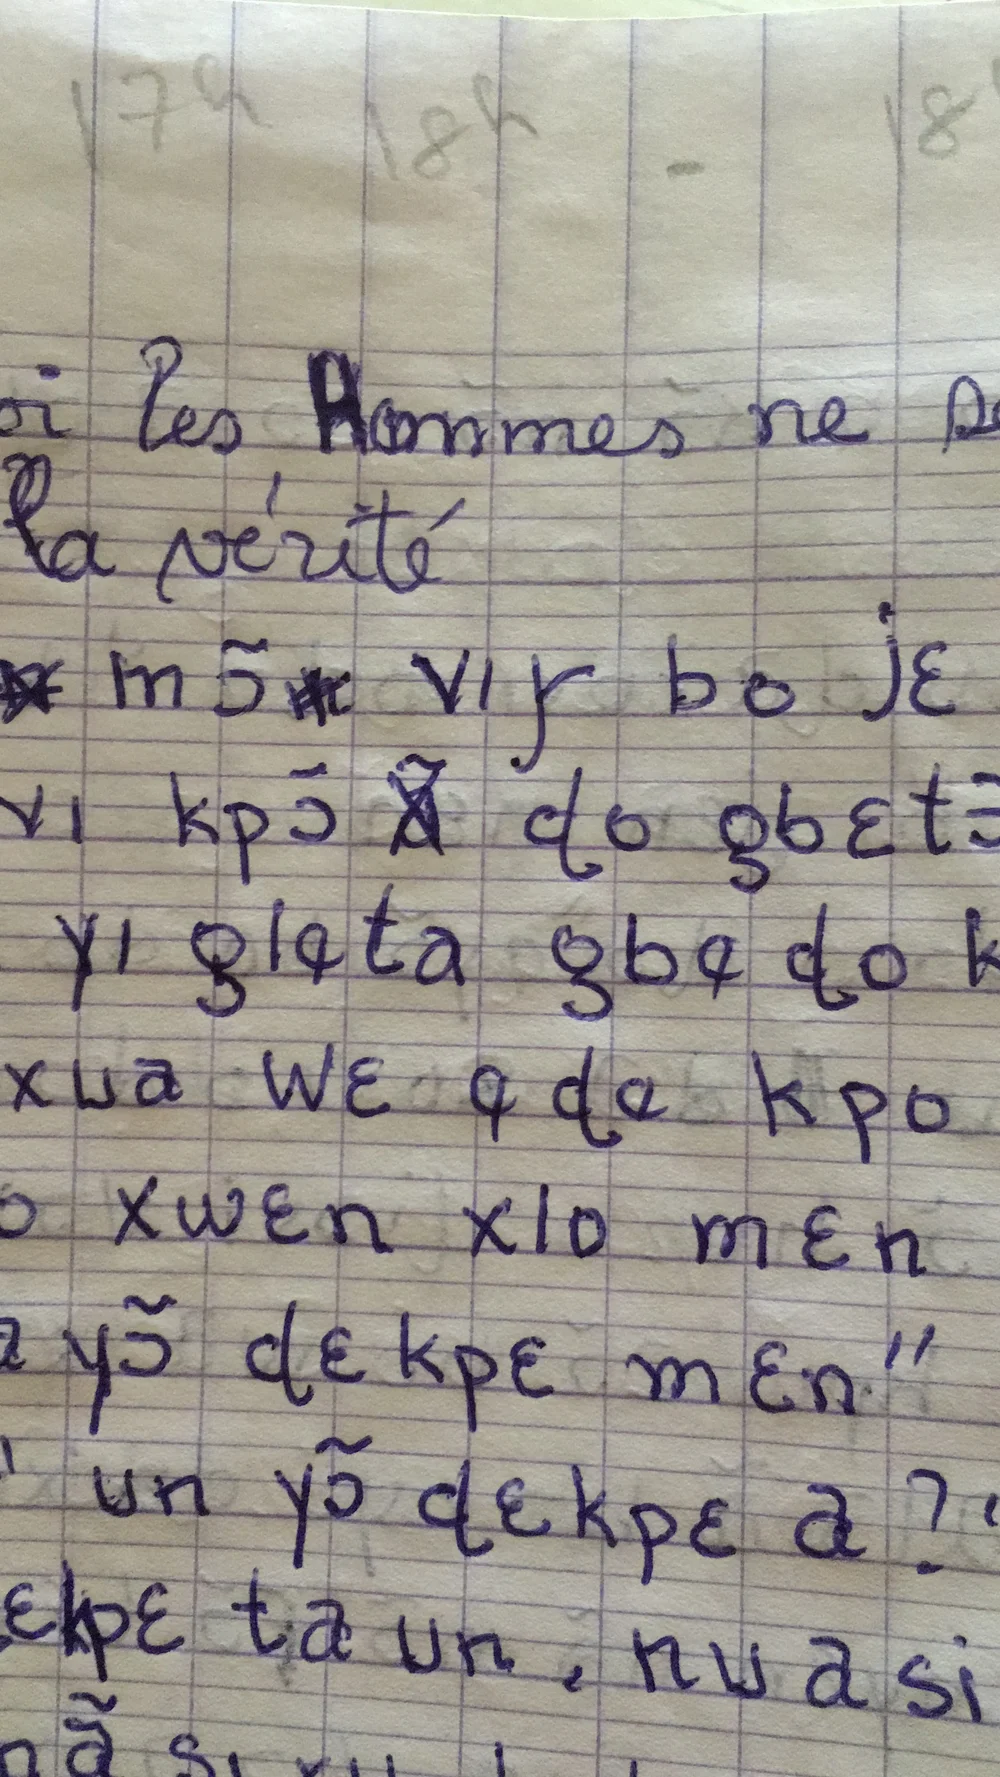 17h 18h - 18
les Hommes ne
la vérité
mɔ̃ vi bo jɛ
vi kpɔ̃ ɖo gbɛtɔ
yi gleta gbe ɖo k
xua wɛ e ɖe kpo
o xwɛn xlo mɛn
a yɔ̃ ɖɛkpɛ mɛn"
" un yɔ̃ ɖɛkpɛ a ? "
ɛkpɛ taun, nu a si